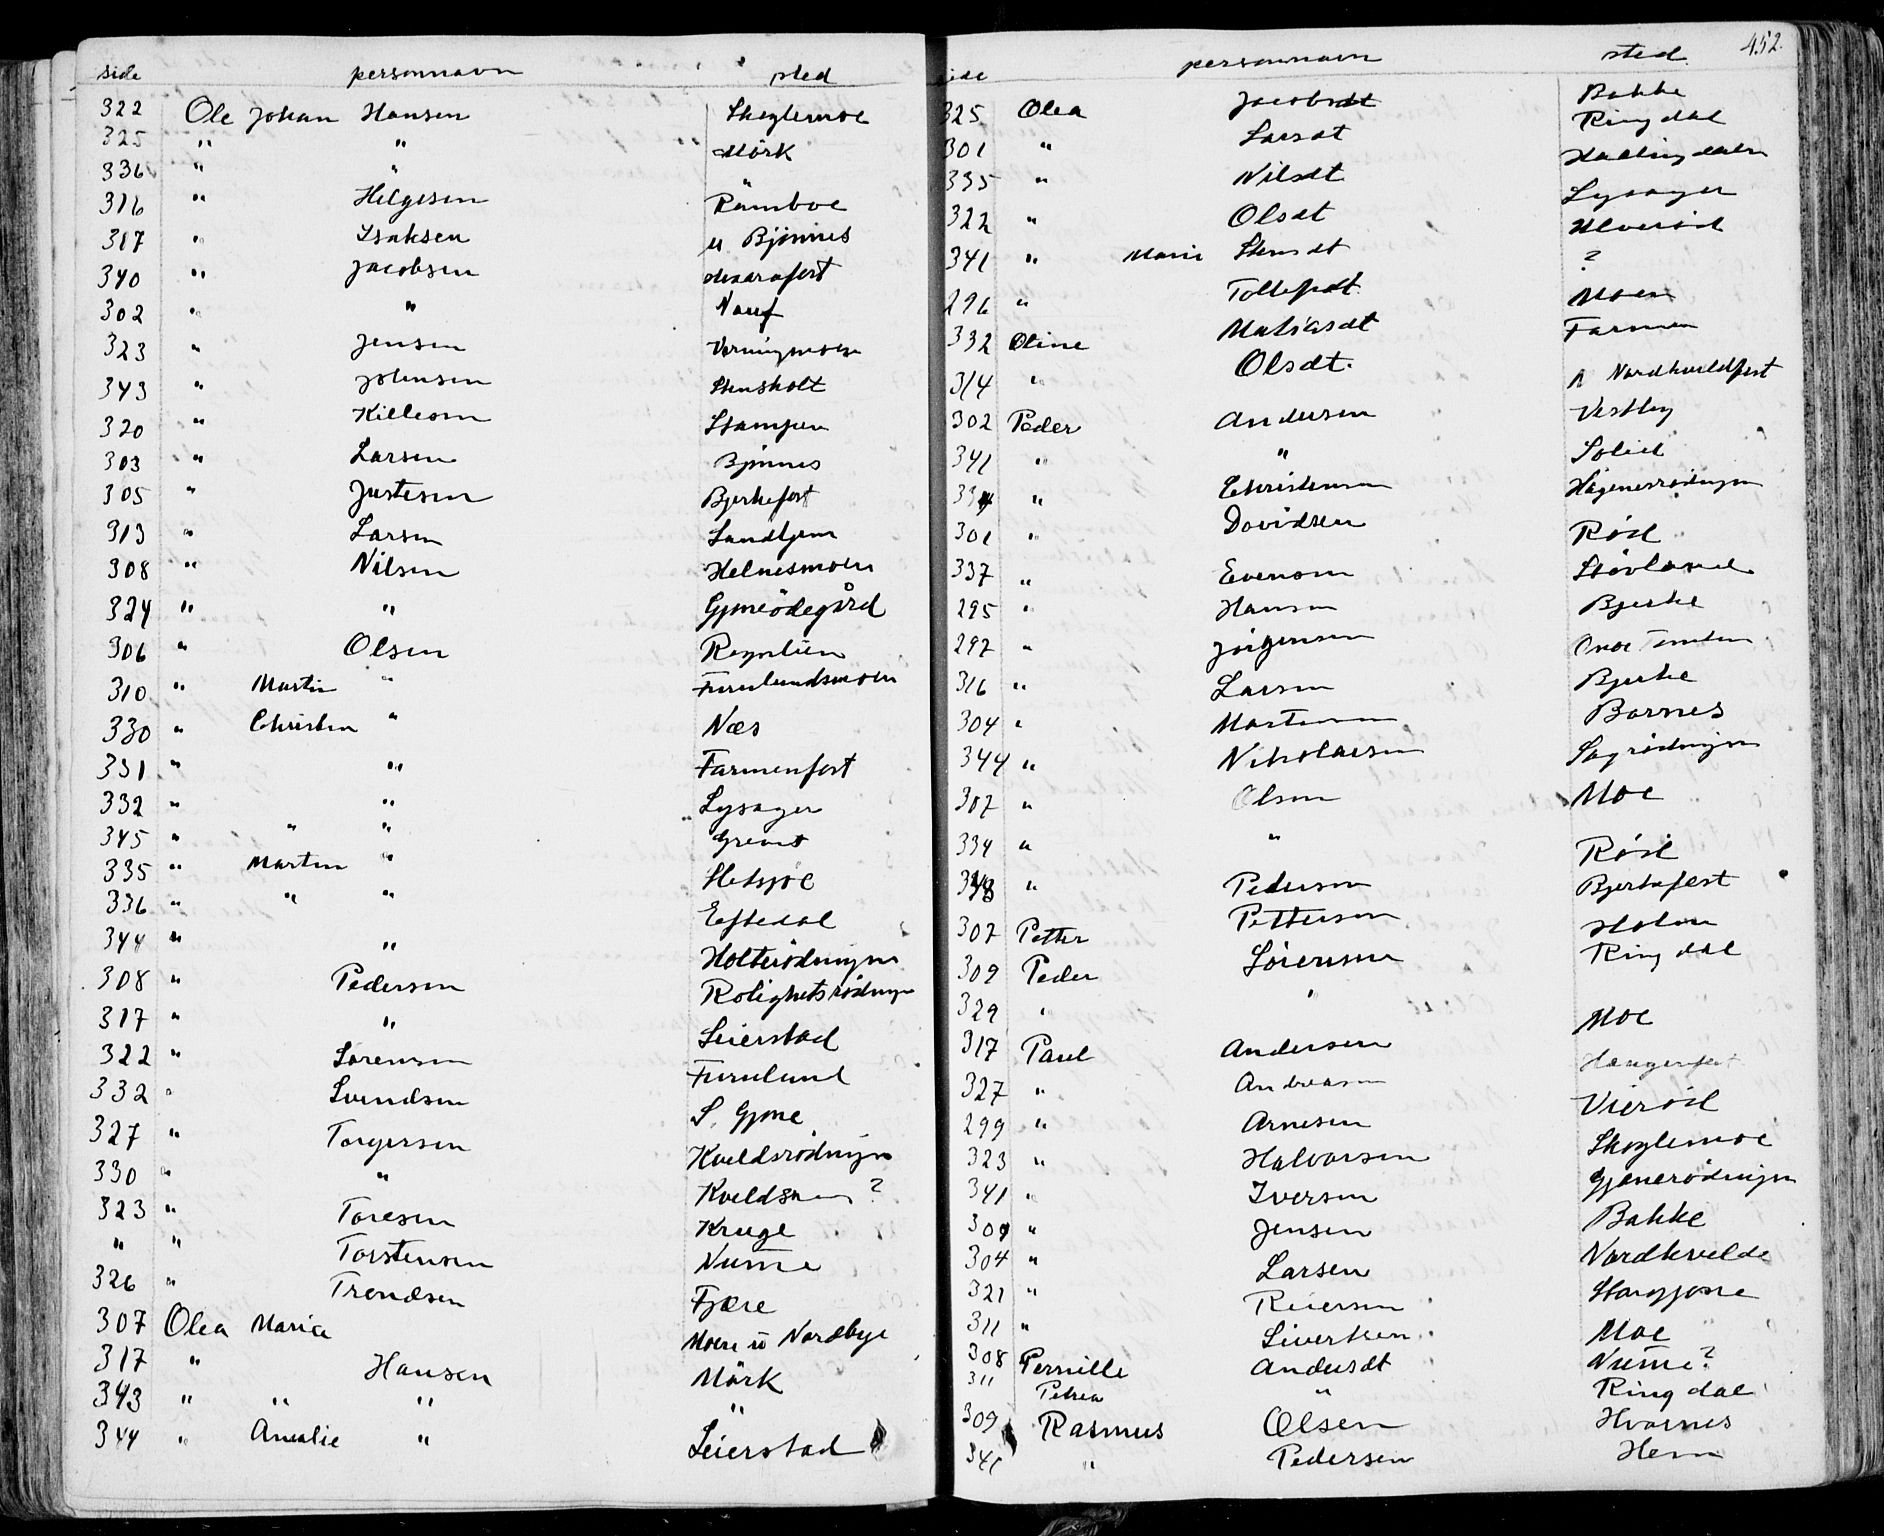 side personnavn sted
322 Ole Johan Hansen Skoglemoe
325 " " Mörk
336 " " "
316 " Helgesen Ramboe
317 " Isaksen u Bjönnes
340 " Jacobsen
302 " " Nauf
323 " Jensen Værningmoen
343 " Johnsen Stensholt
320 " Killesen Stampen
303 " Larsen Bjönnes
305 " Justesen Bjerkefost
313 " Larsen
308 " Nilsen Helnesmoen
324 " " Gjoneödegård
306 " Olsen
310 " Martin " Furulundsmoen
330 " Christen " Næs
331 " " Farmenfost
332 " " Lysager
345 " " "
335 " Martin "
336 " " " Eftedal
344 " " Holterödningen
308 " Pedersen Rolighetsrödningen
317 " " Seierstad
322 " Sorensen Furulund
332 " Svendsen S. Gjone
327 " Torgersen Kveldsrödningen
330 " " ?
323 " Toresen Kruge
" " Torstensen Nume
326 " Trondsen Fjære
307 Olea Maria Moen u Nordbye
317 " Hansen Mörk
343 " " " "
344 " Amalie " Seierstad
452.
side personnavn sted
325 Olea Jacobsdt Bakke
301 " Larsdt Ringdal
335 " Nilsdt
322 " Olsdt Lysager
341 " Marie Stensdt Ulveröd
296 " Tollefsdt ?
332 Oline Matiasdt Moen
314 " Olsdt. Farmen
302 Peder Andersen Vestby
341 " " Solied
334 " Christensen
301 " Davidsen Röd
337 " Evensen Stövland
295 " Hansen Bjerke
297 " Jörgensen
316 " Larsen Bjerke
304 " Martinsen Barnes
344 " Nikolaisen Sagrödningen
307 " Olsen Moe
334 " " Röd
348 " Pedersen Bjerkefest
307 Petter Pettersen Holm
309 Peder Sörensen Ringdal
329 " " Moe
317 Paul Andersen
327 " Andreasen Vieröd
299 " Arnesen Skoglemoe
323 " Halvorsen Gjonerödningen
341 " Iversen Bakke
309 " Jensen Nordkvelde
304 " Larsen
321 " Reiersen Moe
311 " Sivertsen
308 Pernille Andersdt Nume?
311 Petrea " Ringdal
309 Rasmus Olsen Hvarnes
341 " Pedersen Hem